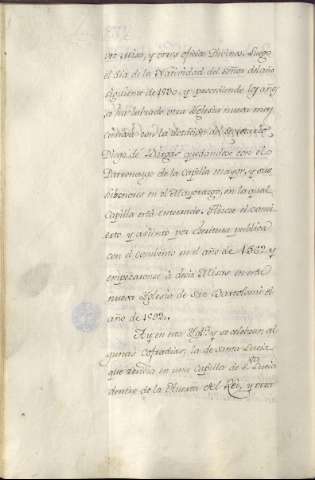 vez Misa, y otros oficios Divinos. Luego
el dia de la Natividad del Señor del año
siguiente de 1500, y pasandose los años
se ha labrado otra Iglesia nueva muy
con la del Secretario
Diego de Vargas quedandose con el
Patronazgo de la capilla mayor, y sus
subcesores en el Mayorazgo, en la qual
Capilla está enterrado. Hizose el conci
erto, y asiento por Escritura publica
con el combento en el año de 1562 y
empezaronse á decir Misas en esta
nueva Iglesia de San Bartolomé el
año de 1592.
Ay en esta Igla. y se celebran al
gunas cofradias, la de Santa Lucia
que residia en una Capilla de Sta. Lucia
dentro de la Huerta del Rey, y otra